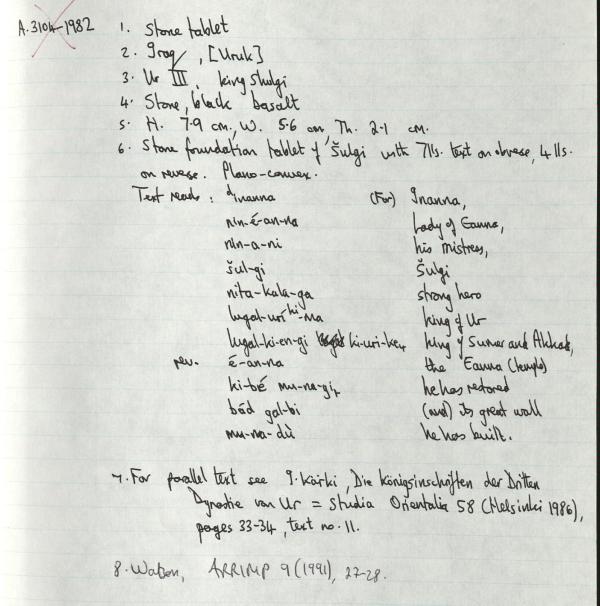 A.3104-1982 1. Stone tablet
2. Iraq, [Uruk]
3. Ur III, king Shulgi
4. Stone, black basalt
5. H. 7.9 cm., W. 5.6 cm, Th. 2.1 cm.
6. Stone foundation tablet of Šulgi with 7 lls. text on obverse, 4 lls.
on reverse. Plano-convex.
Text reads: ᵈInanna (For) Inanna,
nin-é-an-na Lady of Eanna,
nin-a-ni his mistress,
šul-gi Šulgi
nita-kala-ga strong hero
lugal-uríᵏⁱ-ma king of Ur
lugal-ki-en-gi ki-uri-ke₄ king of Sumer and Akkad,
rev. é-an-na the Eanna (temple)
ki-bé mu-na-gi₄ he has restored
bàd gal-bi (and) its great wall
mu-na-dù he has built.
7. For parallel text see I. Kärki, Die Königsinschriften der Dritten
Dynastie von Ur = Studia Orientalia 58 (Helsinki 1986),
pages 33-34, text no. 11.
8. Watson, ARRIMP 9 (1991), 27-28.